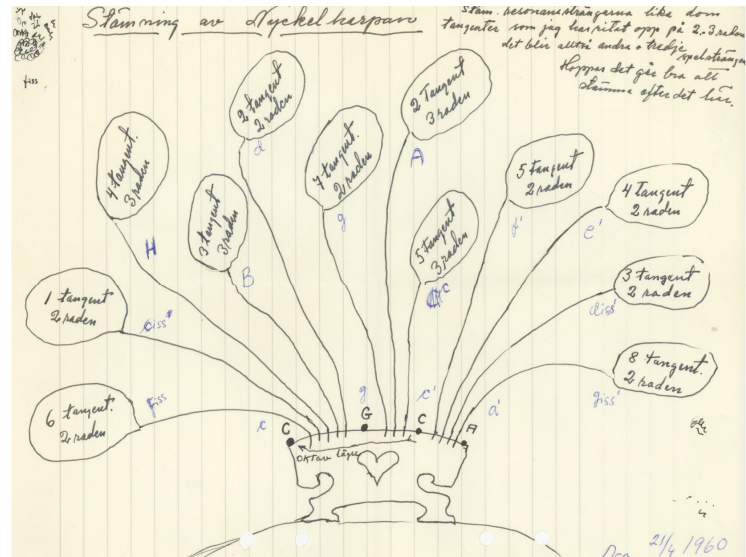 Stämning av Nyckelharpan
Stäm. resonanssträngarna lika dom
tangenter som jag har ritat opp på 2.3. raden
det blir alltså andra o tredje spelsträngen
Hoppas det går bra att
stämma efter det här.
fiss
2 tangent
2 raden
d
2 Tangent
3 raden
A
4 tangent
3 raden
H
7 tangent.
2 raden
g
5 tangent
2 raden
f'
4 tangent
2 raden
e'
3 tangent
3 raden
B
5 tangent
3 raden
c
1 tangent
2 raden
ciss'
3 tangent
2 raden
diss'
6 tangent.
2 raden
fiss
8 tangent.
2 raden
giss'
c
C
g
G
c'
C
a'
A
oktav lägre
21/4 1960